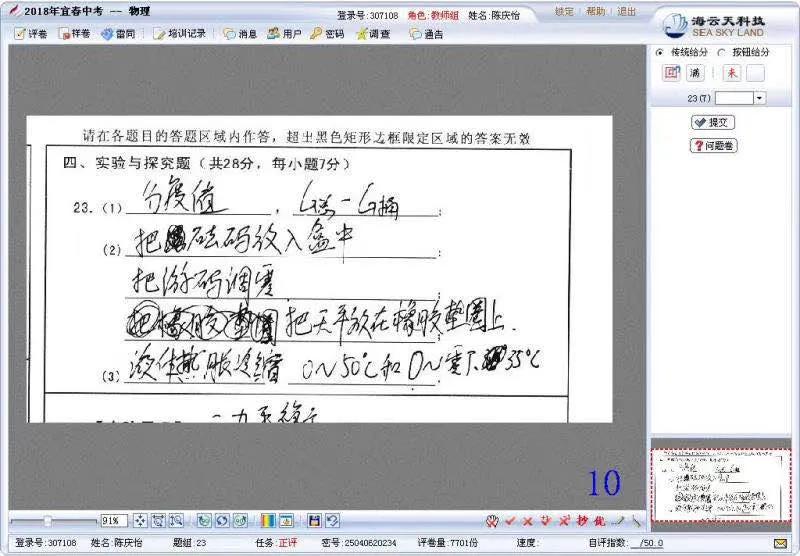 2018年宜春中考 -- 物理
登录号:307108 角色:教师组 姓名:陈庆怡
锁定 | 帮助 | 退出
评卷 样卷 雷同 培训记录 消息 用户 密码 调查 通告
海云天科技
SEA SKY LAND
传统给分 按钮给分
满 未
23(7)
提交
问题卷
请在各题目的答题区域内作答，超出黑色矩形边框限定区域的答案无效
四、实验与探究题（共28分，每小题7分）
23.（1）分度值，G总-G桶；
（2）把砝码放入盒中；
把游码调零
把橡胶垫圈 把天平放在橡胶垫圈上.
（3）液体热胀冷缩 0~50℃和0~零下35℃
二力平衡
10
91%
抄 优
登录号:307108 姓名:陈庆怡 题组:23 任务:正评 密号:25040620234 评卷量:7701份 速度: 自评指数:__/50.0